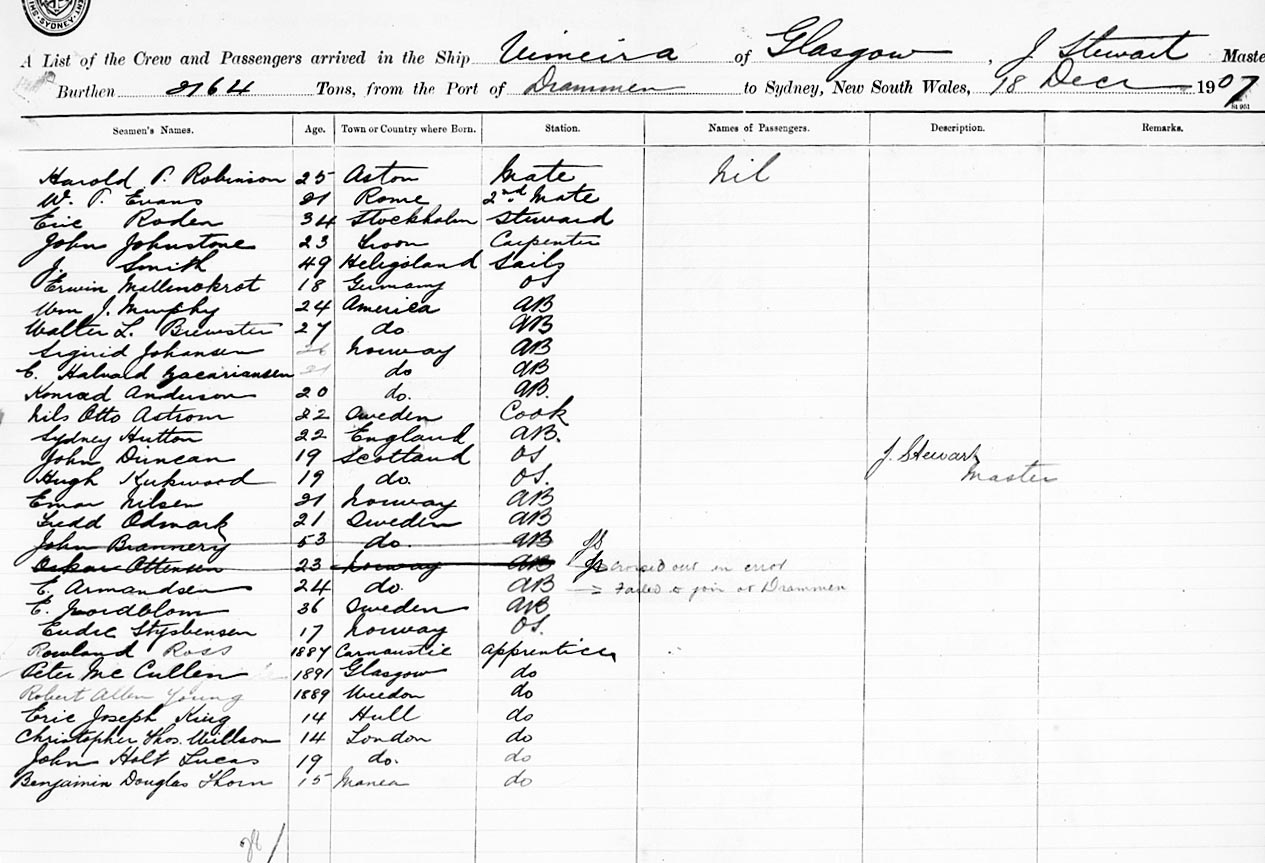 SYDNEY
A List of the Crew and Passengers arrived in the Ship Vimeira of Glasgow, J Stewart Maste
Burthen 2164 Tons, from the Port of Drammen to Sydney, New South Wales, 18 Decr 1907
Seamen's Names. Age. Town or Country where Born. Station. Names of Passengers. Description. Remarks.
Harold P. Robinson 25 Aston Mate Nil
W. P. Evans 21 Rome 2nd Mate
Eric Roden 34 Stockholm Steward
John Johnstone 23 Troon Carpenter
J. Smith 49 Heligoland Sails
Erwin Mallinckrot 18 Germany OS
Wm J. Murphy 24 America AB
Walter L. Brewster 27 do AB
Sigurd Johansen 26 Norway AB
E. Halvard Zacariansen 21 do AB
Konrad Anderson 20 do. AB.
Nils Otto Astrom 22 Sweden Cook
Sydney Hutton 22 England AB.
John Duncan 19 Scotland OS J. Stewart
Hugh Kirkwood 19 do. OS. Master
Einar Nilsen 21 Norway AB
Fredd Odmark 21 Sweden AB
John Brannery 53 do. AB JS
Oskar Ottensen 23 Norway AB JS crossed out in error
E. Armandsen 24 do. AB Failed to join at Drammen
E. Nordblom 36 Sweden AB
Endre Stysbensen 17 Norway OS.
Rowland Ross 1887 Carnoustie apprentice
Peter McCullen 1891 Glasgow do
Robert Allen Young 1889 Weedon do
Eric Joseph King 14 Hull do
Christopher Thos. Willson 14 London do
John Holt Lucas 19 do. do
Benjamin Douglas Thorn 15 Manea do